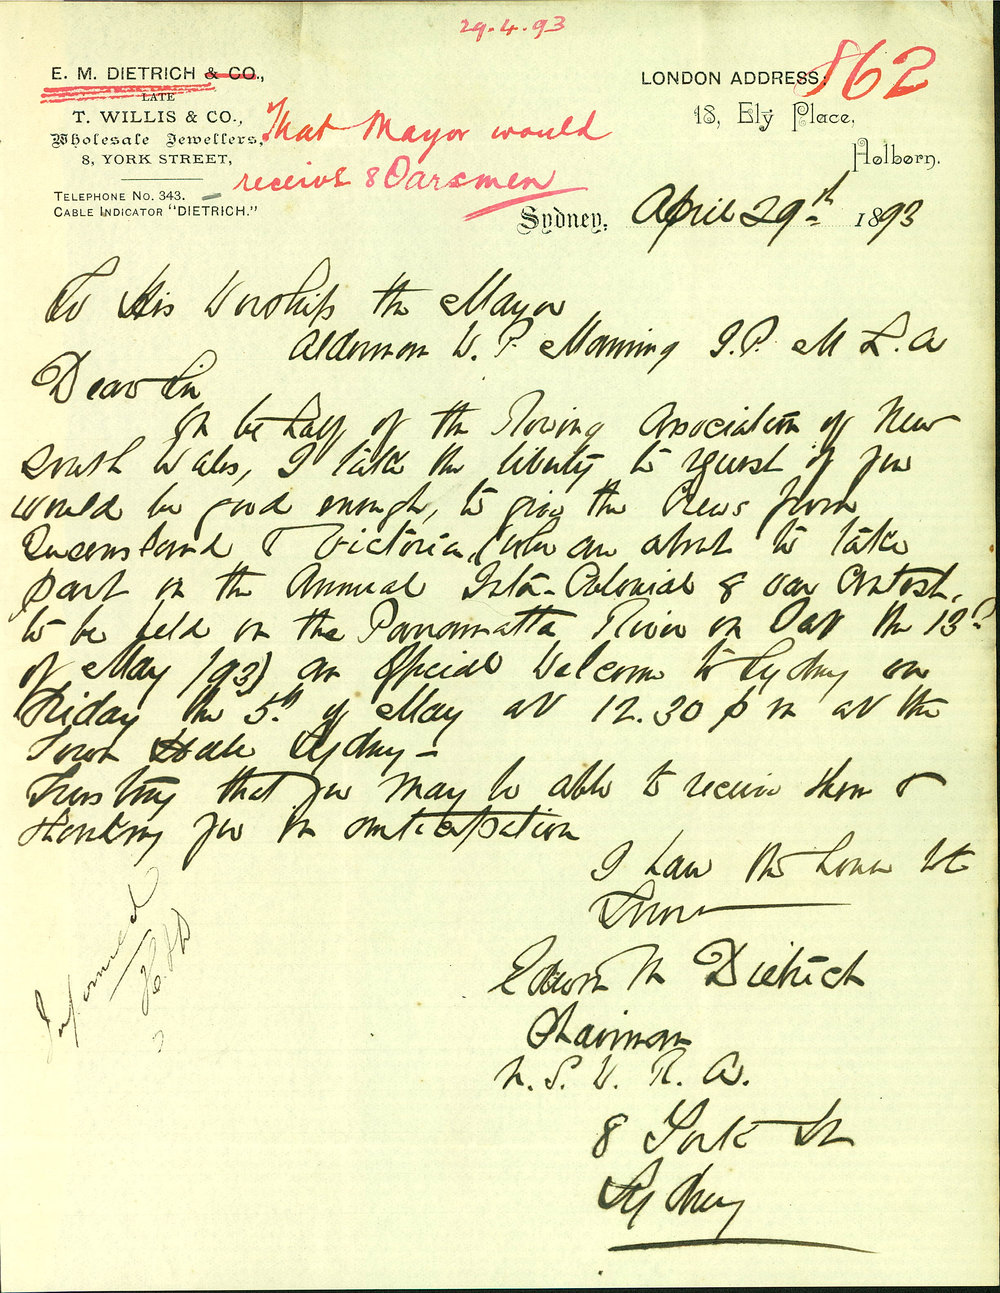 29.4.93
E. M. DIETRICH & CO.,
LATE
T. WILLIS & CO.,
Wholesale Jewellers,
8, YORK STREET,
TELEPHONE No. 343.
CABLE INDICATOR "DIETRICH."
LONDON ADDRESS:
18, Ely Place,
Holborn.
862
That Mayor would
receive 8 Oarsmen
Sydney, April 29th 1893
To His Worship the Mayor
Alderman W. P. Manning J.P. M L.A
Dear Sir
On be half of the Rowing Association of New
South Wales, I take the liberty to request if you
would be good enough, to give the Crews from
Queensland & Victoria, (who are about to take
part in the Annual Inter-Colonial 8 oar Contest,
to be held on the Parramatta River on Sat the 13th
of May /93) an Official Welcome to Sydney on
Friday the 5th of May at 12.30 p m at the
Town Hall Sydney –
Trusting that you may be able to receive them &
thanking you in anticipation
I have the honor to be
Yours
Edwin M Dietrich
Chairman
N. S. W. R. A.
8 York St
Sydney
Informed